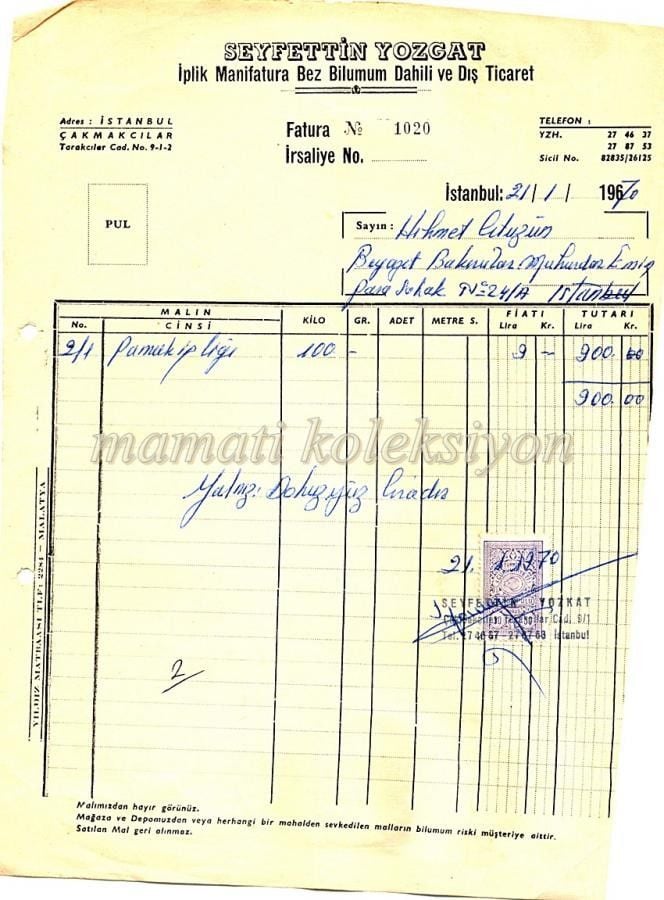 SEYFETTİN YOZGAT
İplik Manifatura Bez Bilumum Dahili ve Dış Ticaret
Adres : İSTANBUL
ÇAKMAKCILAR
Tarakcılar Cad. No. 9-1-2
Fatura № 1020
İrsaliye No.
TELEFON :
YZH. 27 46 37
27 87 53
Sicil No. 82835/26125
İstanbul: 21/1/1970
PUL
Sayın : Hikmet
Beyazıt Bakırcılar Mühürdar Emin
Paşa Sokak № 24/A İstanbul
MALIN
No. CİNSİ KİLO GR. ADET METRE S. FİATI Lira Kr. TUTARI Lira Kr.
2/1 Pamuk ipliği 100.- 9 - 900.00
900.00
mamati koleksiyon
Yalnız: Dokuzyüz liradır
21.1.1970
SEYFETTİN YOZKAT
Cad. 9/1
İstanbul
2
YILDIZ MATBAASI TLF: 2284 — MALATYA
Malımızdan hayır görünüz.
Mağaza ve Depomuzdan veya herhangi bir mahalden sevkedilen malların bilumum riski müşteriye aittir.
Satılan Mal geri alınmaz.